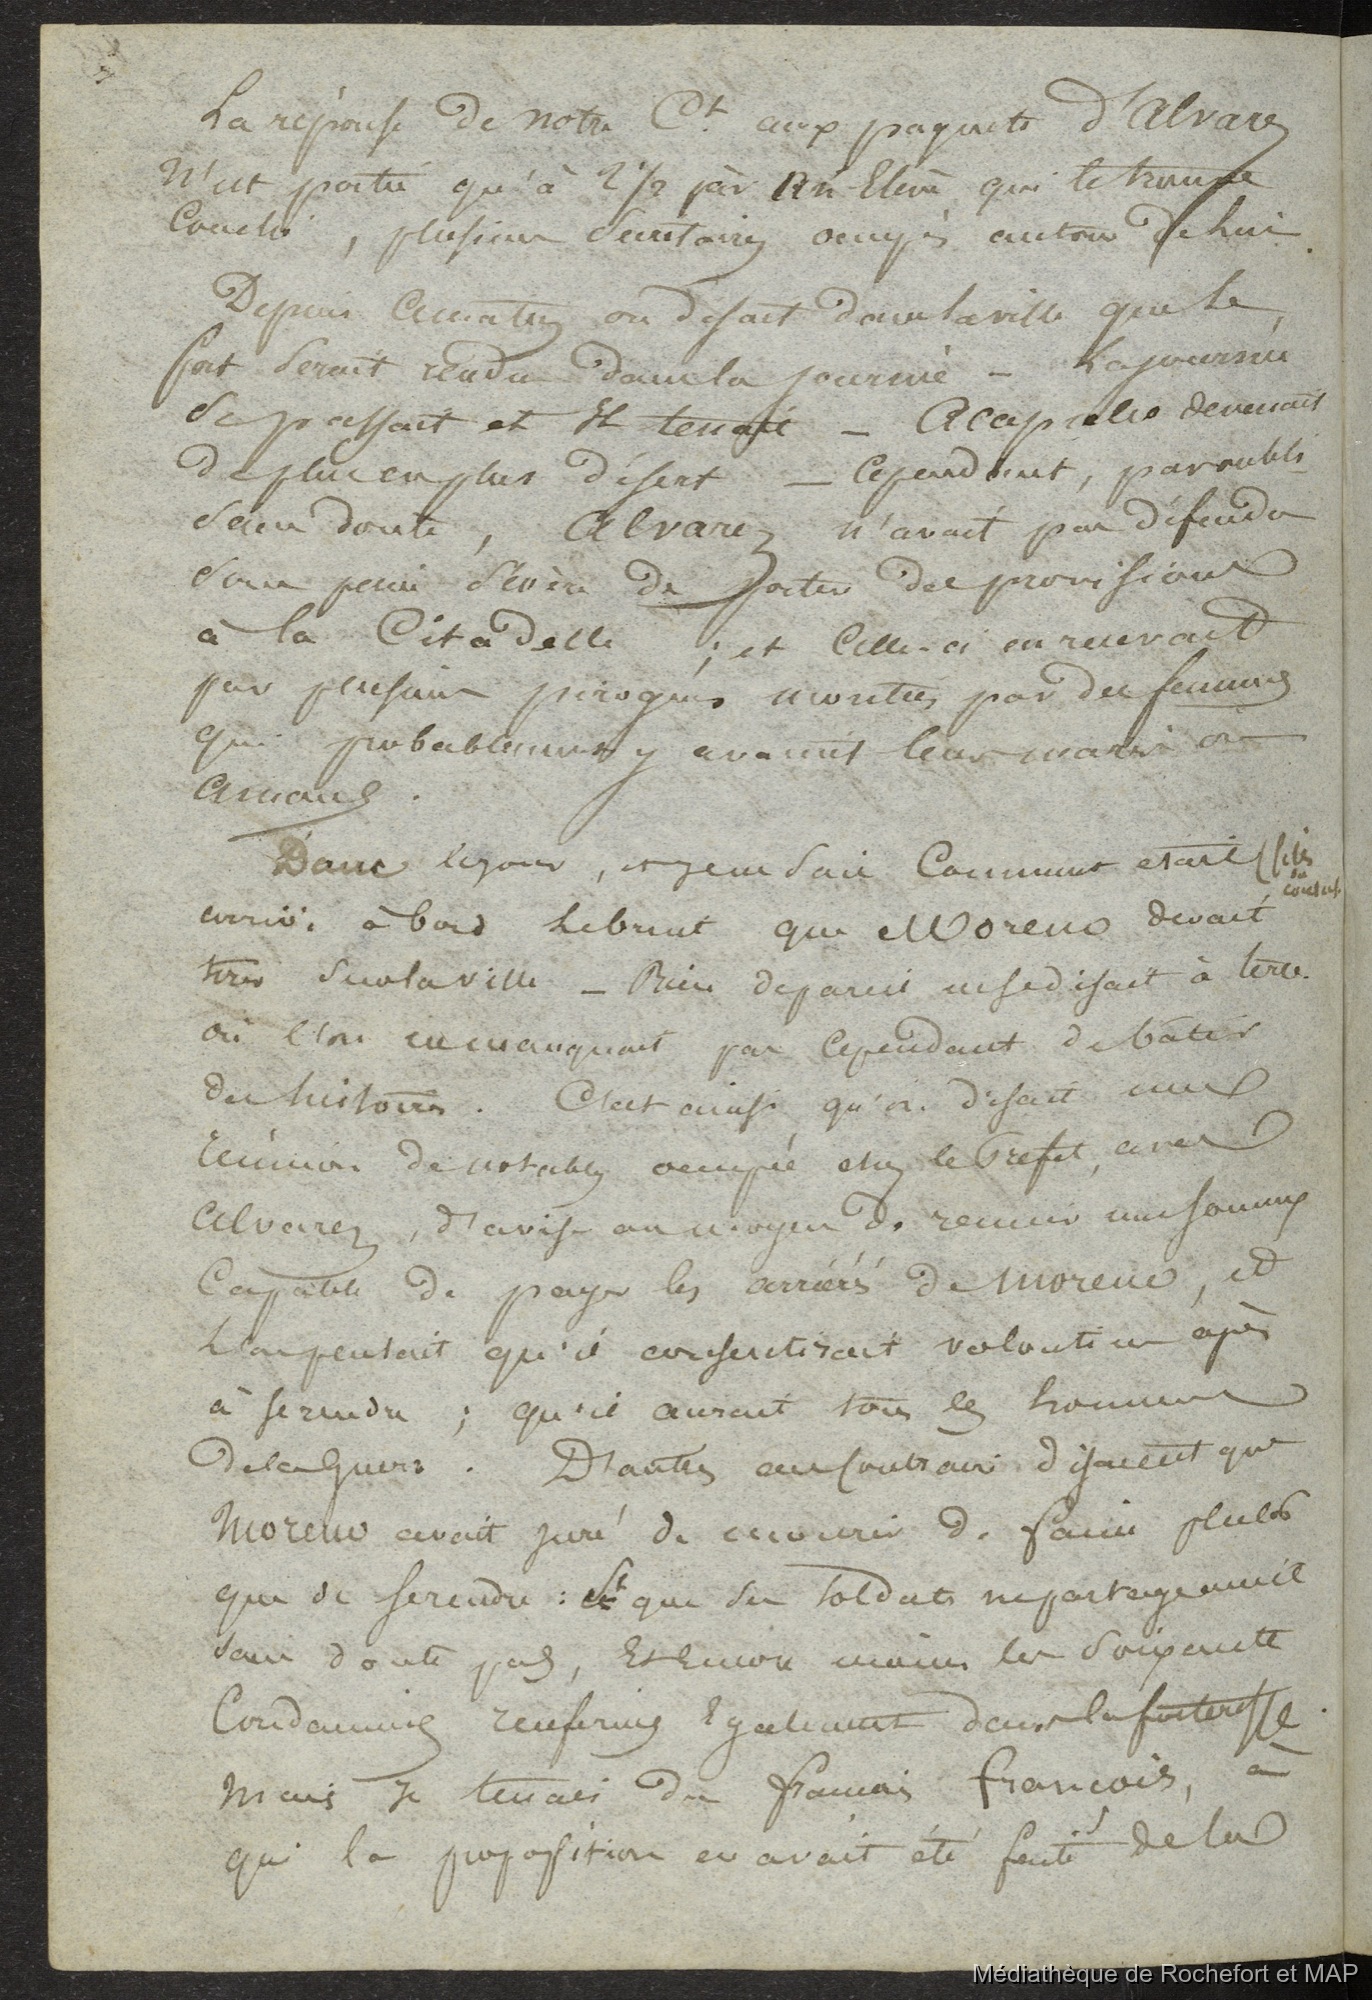 La réponse de notre Ct. aux paquets d'Alvarez
N'est partie qu'à 2 1/2 par un Elève qui le trouva
Couché, plusieurs Secretaires occupés autour de lui.
Depuis ce matin on disait dans la ville que le
fort Serait rendu dans la journée — La journée
Se passait et Il tenait — Acapulco devenait
de plus en plus désert — Cependant, par oubli
Sans doute, Alvarez n'avait pas défendu
Sous peine Sévère de porter des provisions
à la Citadelle ; et Celle-ci en recevait
par plusieurs pirogues montées par des femmes
qui probablement y avaient leurs maris ou
Amans.
Dans le jour, et je ne Sais Comment etait
arrivé à bord le bruit que Moreno devait
tirer Sur la ville — Rien de pareil ne se disait à terre
où l'on ne manquait pas Cependant de bâtir
des histoires. C'est ainsi qu'on disait une
réunion de notables occupée chez le Préfet, avec
Alvarez, d'aviser au moyen de reunir une somme
Capable de payer les arriérés de Moreno, et
L'on pensait qu'il consentirait volontiers après
à se rendre ; qu'il aurait tous les honneurs
de la Guerre. D'autres au Contraire disaient que
Moreno avait juré de mourir de faim plutôt
que de se rendre : Et que ses soldats ne partageaient
Sans doute pas, Et Encore moins les Soixante
Condamnés renfermés Egalement dans la forteresse.
Mais je tenais du français François, à
qui la proposition en avait été faite de la
(fils
du
consul
Médiathèque de Rochefort et MAP